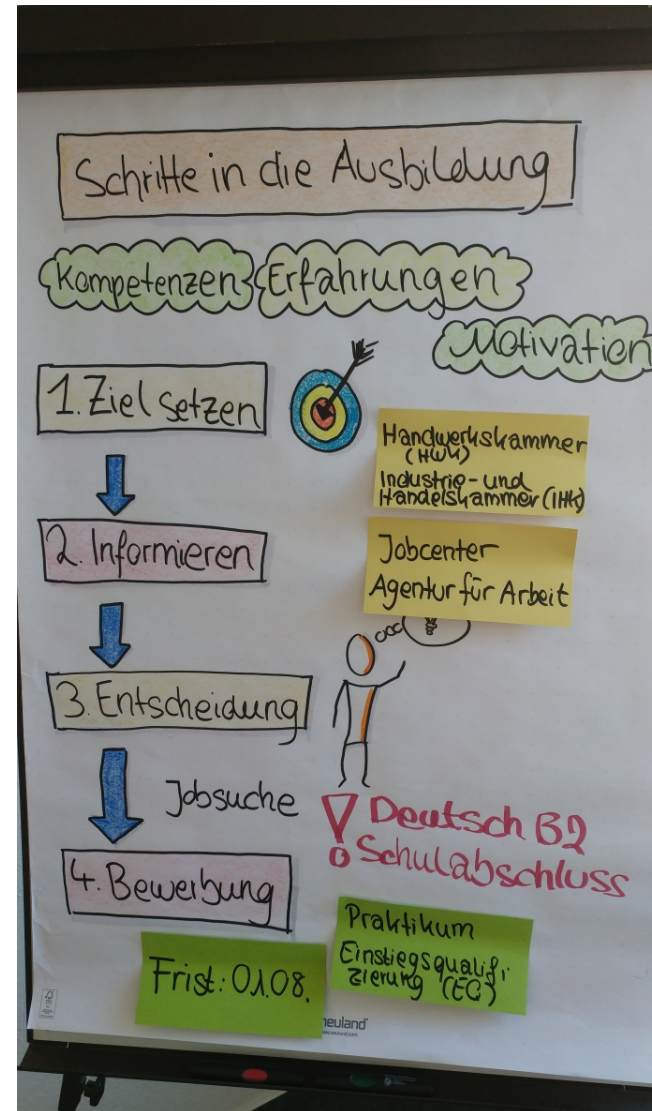 Schritte in die Ausbildung
Kompetenzen Erfahrungen
Motivation
1. Ziel setzen
Handwerkskammer
(HWK)
Industrie- und
Handelskammer (IHK)
2. Informieren
Jobcenter
Agentur für Arbeit
3. Entscheidung
Jobsuche
! Deutsch B2
Schulabschluss
4. Bewerbung
Praktikum
Einstiegsqualifi-
zierung (EQ)
Frist: 01.08.
neuland